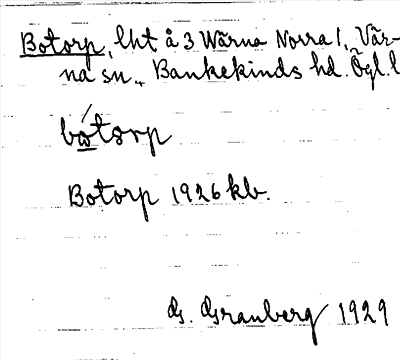 Botorp, lht å 3 Wärna Norra 1, Vår-
na sn., Bankekinds hd. Ögl. l
bo̲tsrp
Botorp 1926 kb.
G. Granberg 1929